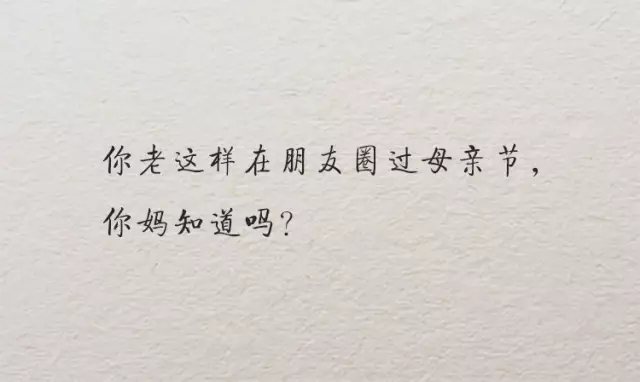 你老这样在朋友圈过母亲节，
你妈知道吗？